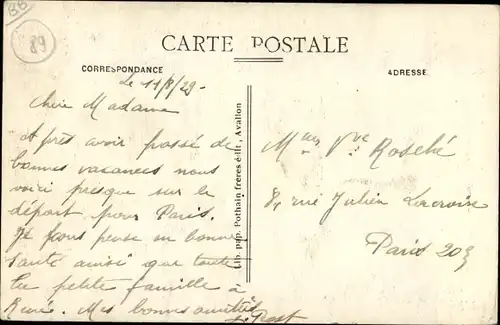 89
CARTE POSTALE
CORRESPONDANCE
ADRESSE
Le 11/8/29-
Chère Madame
Après avoir passé de
bonnes vacances nous
voici presque sur le
départ pour Paris.
Je vous pense en bonne
santé ainsi que toute
la petite famille à
René. Mes bonnes amitiés
Lib. pap. Pothain frères édit., Avallon
Mme Vve
rue Julien Lacroix
Paris 20e